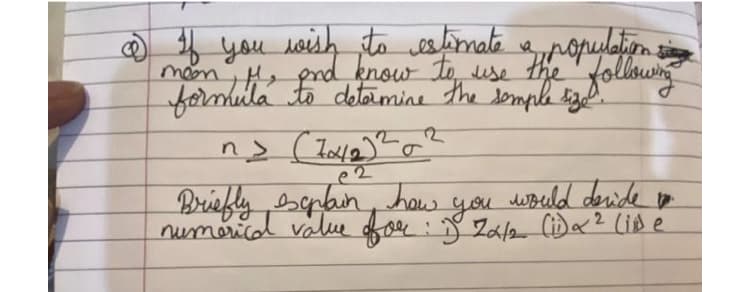 Q) If you wish to estimate a population
mean, μ, and know to use the following
formula to determine the sample size.
n ≥ (Zα/2)² σ²
e²
Briefly explain how you would decide
numerical value for : i) Zα/2 (ii) α² (iii) e